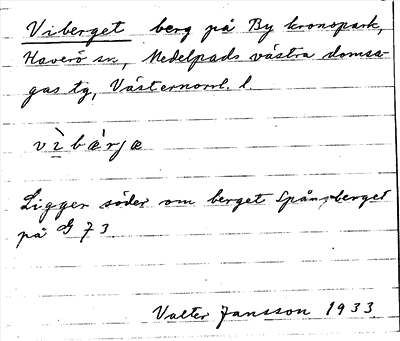 Viberget berg på By kronopark,
Haverö sn, Medelpads västra domsa-
gas tg, Västernorrl. l.
vìbærjæ
Ligger söder om berget Spångberget
på G 73.
Valter Jansson 1933